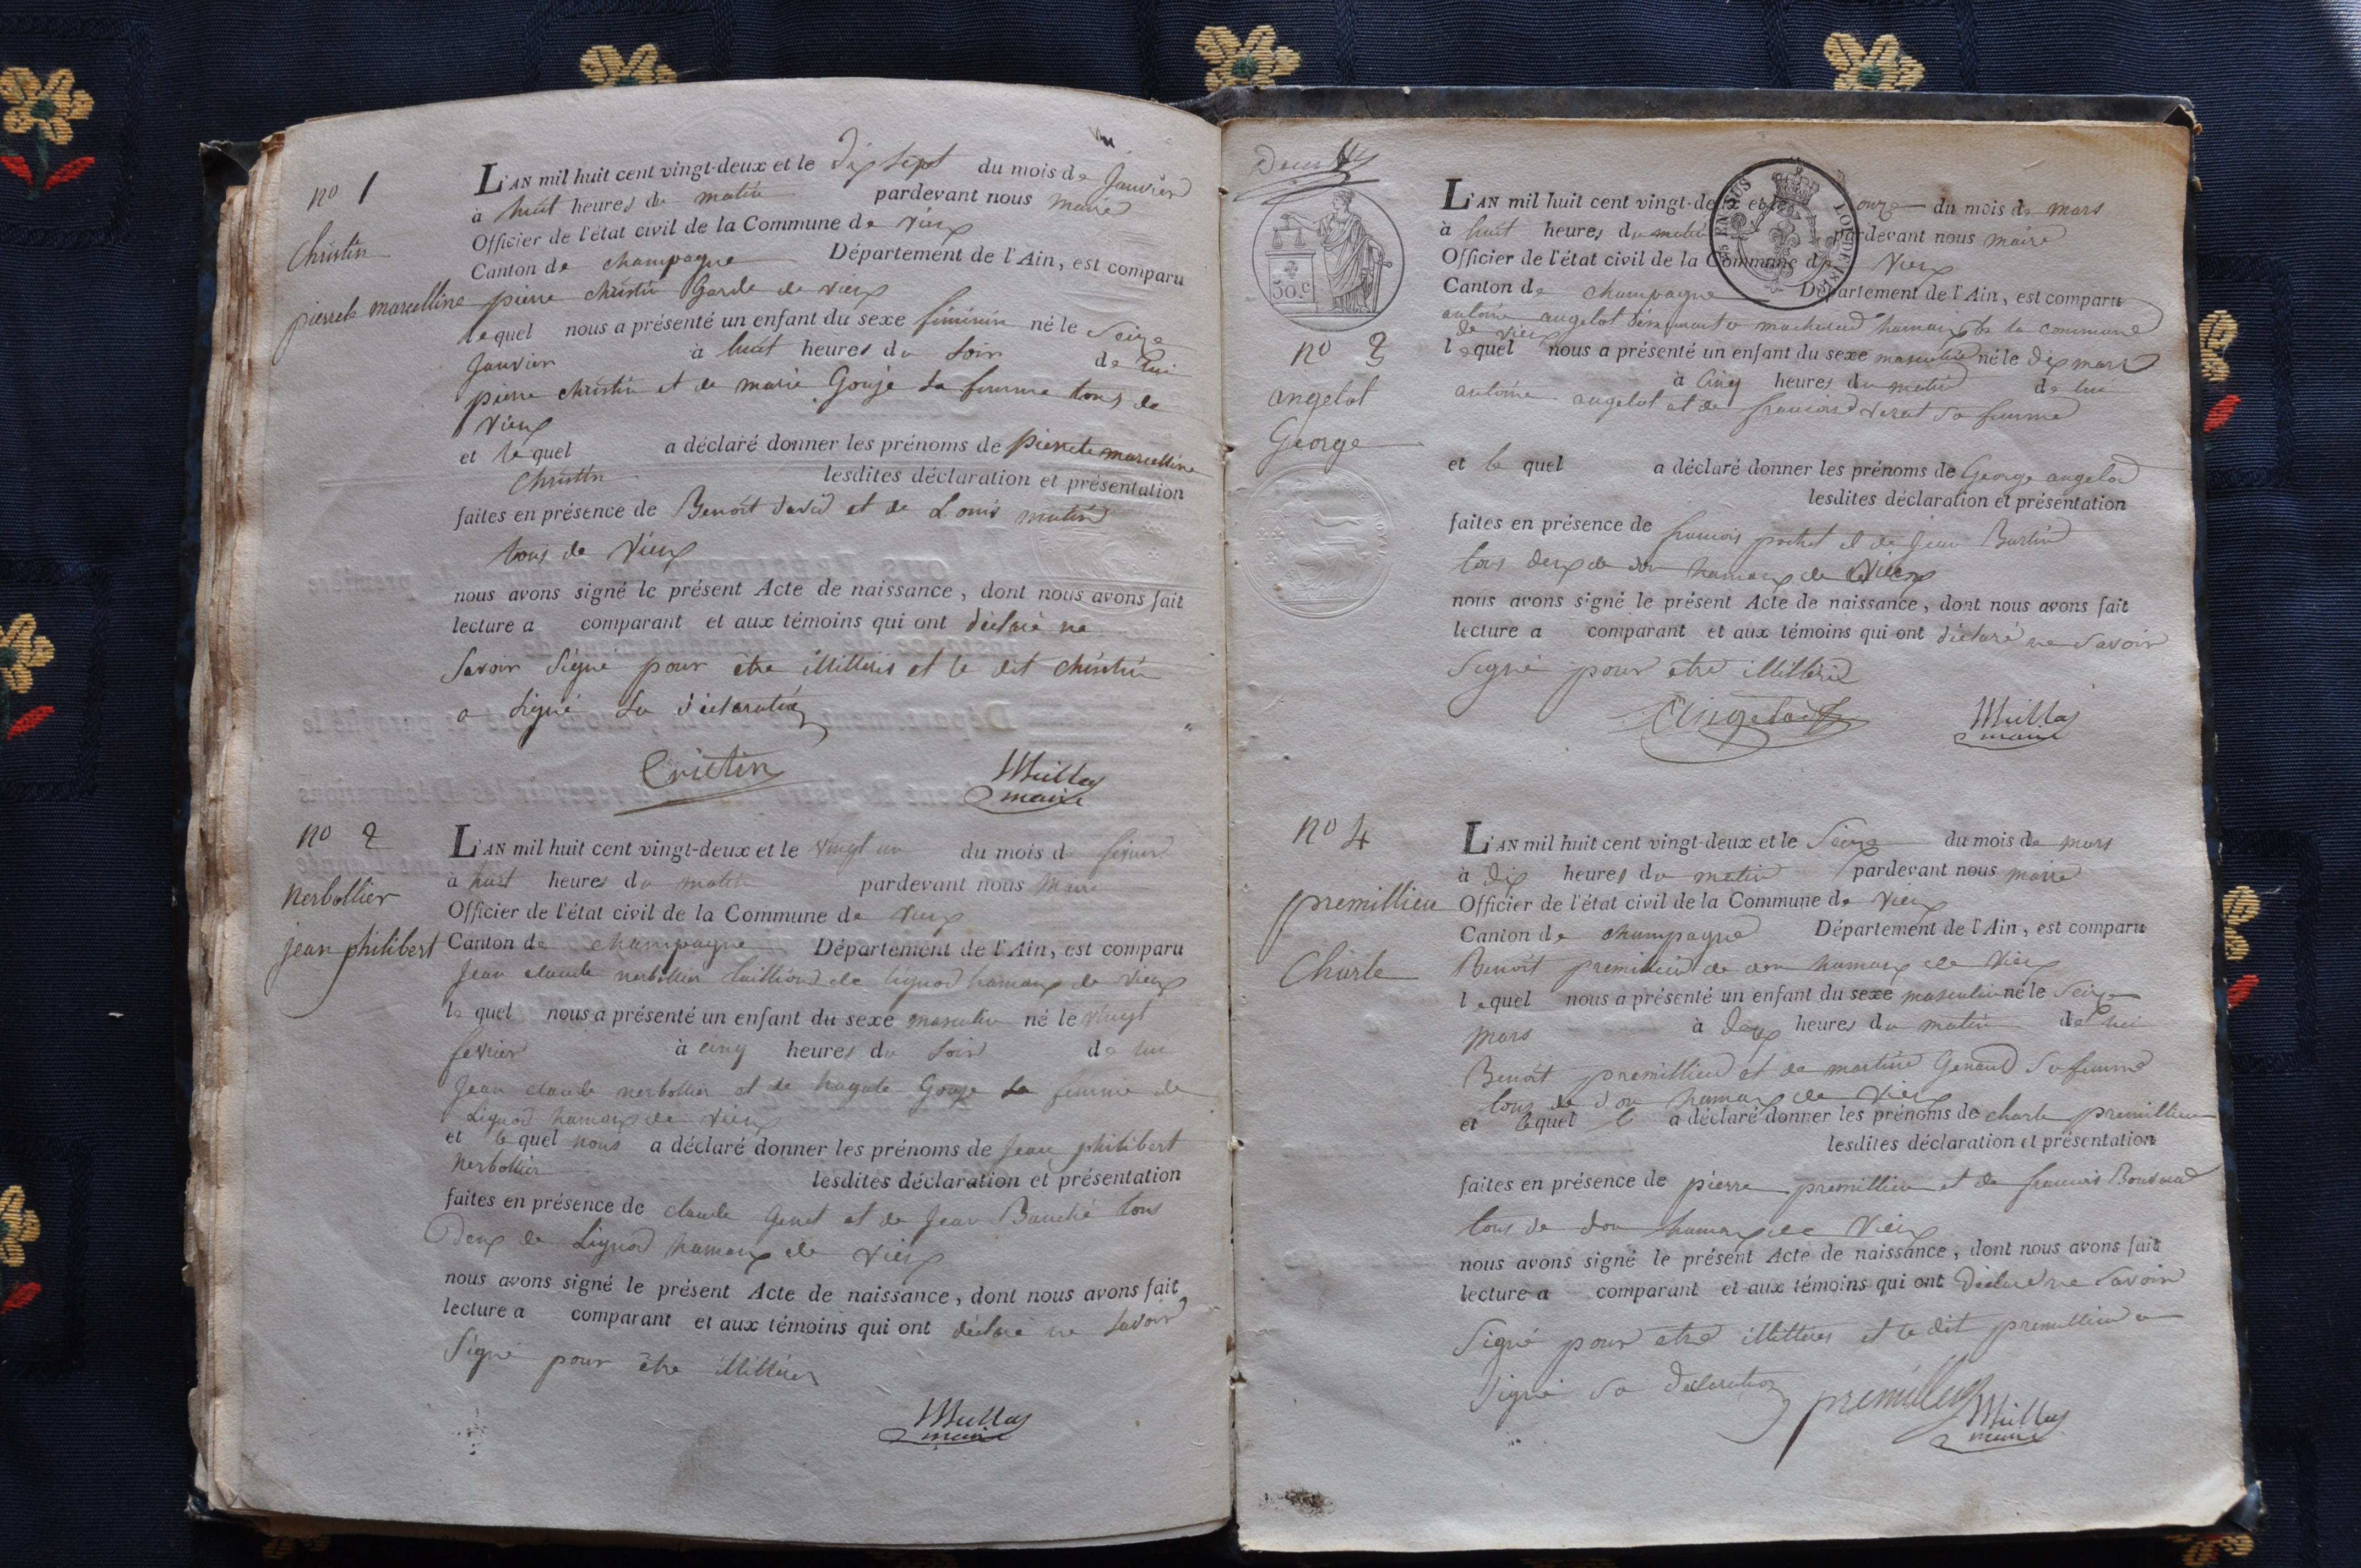 no 1
Christin
pierrete marcelline
L'AN mil huit cent vingt-deux et le dix sept du mois de Janvier
à huit heures du matin pardevant nous maire
Officier de l'état civil de la Commune de vieux
Canton de champagne Département de l'Ain, est comparu
pierre christin Garde de vieux
lequel nous a présenté un enfant du sexe féminin né le Seize
Janvier à huit heures du soir de lui
pierre christin et de marie Gouje sa femme tous de
vieux
et le quel a déclaré donner les prénoms de pierrete marcelline
Christin lesdites déclaration et présentation
faites en présence de Benoit david et de Louis mutin
tous de vieux
nous avons signé le présent Acte de naissance, dont nous avons fait
lecture a comparant et aux témoins qui ont déclaré ne
savoir signé pour être illitteris et le dit christin
a signé sa déclaration
Cristin
maire
no 2
nerbollier
jean philibert
L'AN mil huit cent vingt-deux et le vingt un du mois de fevrier
à huit heures du matin pardevant nous Maire
Officier de l'état civil de la Commune de vieux
Canton de champagne Département de l'Ain, est comparu
Jean claude nerbollier de lignod hamaux de vieux
le quel nous a présenté un enfant du sexe masculin né le vingt
fevrier à cinq heures du soir de lui
Jean claude nerbollier et de hagate Gouje sa femme de
Lignod hamaux de vieux
et le quel nous a déclaré donner les prénoms de Jean philibert
nerbollier lesdites déclaration et présentation
faites en présence de claude Genet et de Jean Bauché tous
Deux de Lignod hamaux de vieux
nous avons signé le présent Acte de naissance, dont nous avons fait
lecture a comparant et aux témoins qui ont déclaré ne savoir
signé pour être illittéré
maire
50.c
no 3
angelot
George
L'AN mil huit cent vingt-deux et le onze du mois de mars
à huit heures du matin pardevant nous maire
Officier de l'état civil de la Commune de Vieux
Canton de champagne Département de l'Ain, est comparu
antoine angelot hamaux de la commune
de vieux
lequel nous a présenté un enfant du sexe masculin né le dix mars
à cinq heures du matin de lui
antoine angelot et de francoise sa femme
et le quel a déclaré donner les prénoms de George angelot
lesdites déclaration et présentation
faites en présence de francois pochet et de Jean Burtin
tous deux de don hamaux de vieux
nous avons signé le présent Acte de naissance, dont nous avons fait
lecture a comparant et aux témoins qui ont déclaré ne savoir
signé pour etre illitteré
Angelot
maire
no 4
premillieu
Charle
L'AN mil huit cent vingt-deux et le Seize du mois de mars
à dix heures du matin pardevant nous maire
Officier de l'état civil de la Commune de Vieux
Canton de champagne Département de l'Ain, est comparu
Benoit premillieu de don hamaux de Vieux
lequel nous a présenté un enfant du sexe masculin né le Seize
Mars à deux heures du matin de lui
Benoit premillieu et de martine Genaud sa femme
tous de don hamaux de Vieux
et lequel a déclaré donner les prénoms de charle premillieu
lesdites déclaration et présentation
faites en présence de pierre premillieu et de francois
tous de don hamaux de Vieux
nous avons signé le présent Acte de naissance, dont nous avons fait
lecture a comparant et aux témoins qui ont déclaré ne savoir
signé pour etre illitteres et le dit premillieu a
signé sa déclaration premillieu
maire